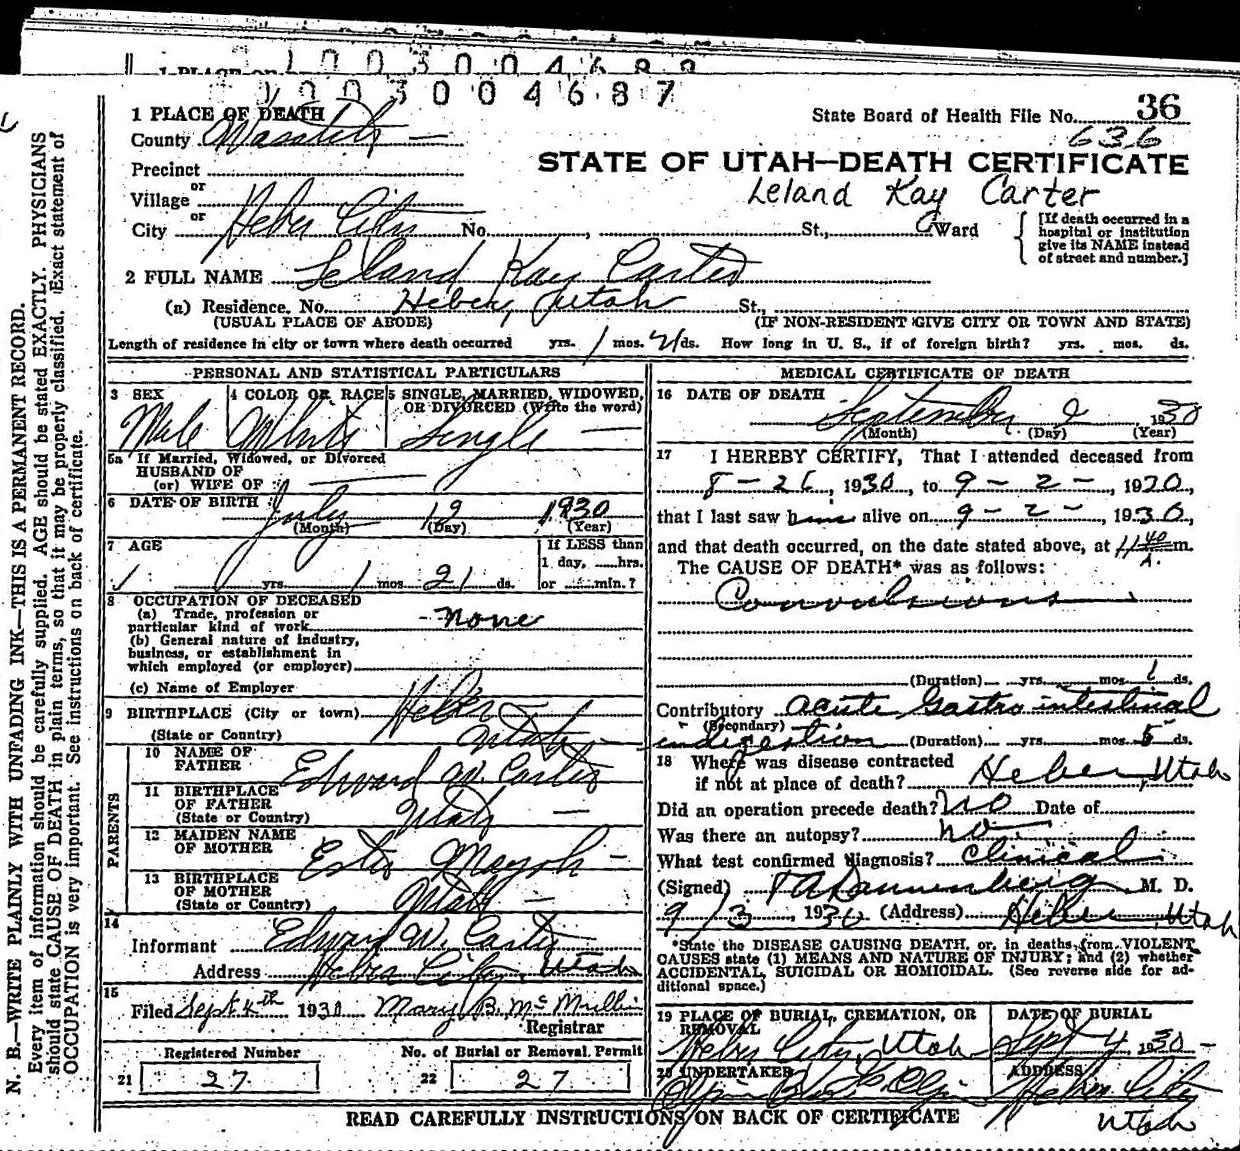 1 PLACE OF
1003004689
1003004687
1 PLACE OF DEATH
State Board of Health File No. 36
County Wasatch
636
Precinct
STATE OF UTAH—DEATH CERTIFICATE
or
Village
Leland Kay Carter
or
City Heber City No. , St., Ward
[If death occurred in a hospital or institution give its NAME instead of street and number.]
2 FULL NAME Leland Kay Carter
(a) Residence. No. Heber, Utah St.,
(USUAL PLACE OF ABODE) (IF NON-RESIDENT GIVE CITY OR TOWN AND STATE)
Length of residence in city or town where death occurred yrs. 1 mos. 21 ds. How long in U. S., if of foreign birth? yrs. mos. ds.
PERSONAL AND STATISTICAL PARTICULARS
3 SEX 4 COLOR OR RACE 5 SINGLE, MARRIED, WIDOWED,
OR DIVORCED (Write the word)
Male White Single
5a If Married, Widowed, or Divorced
HUSBAND OF
(or) WIFE OF
6 DATE OF BIRTH July 12 1930
(Month) (Day) (Year)
7 AGE If LESS than
1 day, hrs.
yrs. 1 mos. 21 ds. or min.?
8 OCCUPATION OF DECEASED
(a) Trade, profession or
particular kind of work none
(b) General nature of industry,
business, or establishment in
which employed (or employer)
(c) Name of Employer
9 BIRTHPLACE (City or town) Heber
(State or Country) Utah
PARENTS
10 NAME OF
FATHER Edward W. Carter
11 BIRTHPLACE
OF FATHER
(State or Country) Utah
12 MAIDEN NAME
OF MOTHER
13 BIRTHPLACE
OF MOTHER
(State or Country) Utah
14
Informant Edward W. Carter
Address Heber City, Utah
15
Filed Sept 4th 1930 Mary B. McMullin
Registrar
Registered Number No. of Burial or Removal Permit
21 27 22 27
MEDICAL CERTIFICATE OF DEATH
16 DATE OF DEATH
September 2 1930
(Month) (Day) (Year)
17 I HEREBY CERTIFY, That I attended deceased from
8-26, 1930, to 9-2-, 1930,
that I last saw him alive on 9-2-, 1930,
and that death occurred, on the date stated above, at 11 40 m.
A.
The CAUSE OF DEATH* was as follows:
Convulsions
(Duration) yrs. mos. 1 ds.
Contributory acute Gastro intestinal
(Secondary)
indigestion (Duration) yrs. mos. 5 ds.
18 Where was disease contracted
if not at place of death? Heber, Utah
Did an operation precede death? No Date of
Was there an autopsy? no
What test confirmed diagnosis? Clinical
(Signed) Dannenberg M. D.
9/3, 1930 (Address) Heber, Utah
*State the DISEASE CAUSING DEATH, or, in deaths from VIOLENT
CAUSES state (1) MEANS AND NATURE OF INJURY; and (2) whether
ACCIDENTAL, SUICIDAL OR HOMICIDAL. (See reverse side for ad-
ditional space.)
19 PLACE OF BURIAL, CREMATION, OR
REMOVAL
DATE OF BURIAL
Heber City, Utah Sept 4 1930
20 UNDERTAKER ADDRESS
Heber City
Utah
READ CAREFULLY INSTRUCTIONS ON BACK OF CERTIFICATE
N. B.—WRITE PLAINLY WITH UNFADING INK—THIS IS A PERMANENT RECORD.
Every item of information should be carefully supplied. AGE should be stated EXACTLY. PHYSICIANS
should state CAUSE OF DEATH in plain terms, so that it may be properly classified. Exact statement of
OCCUPATION is very important. See instructions on back of certificate.